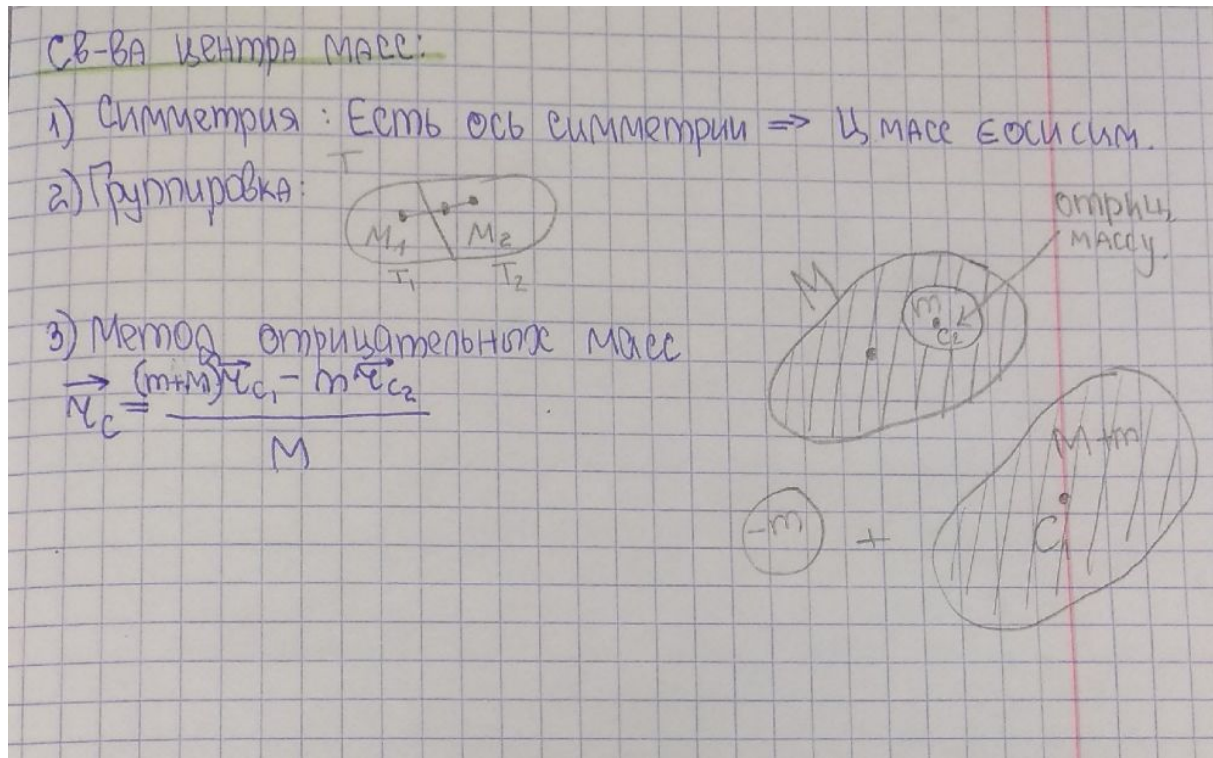 СВ-ВА ЦЕНТРА МАСС:
1) Симметрия : Есть ось симметрии => Ц МАСС ∈ оси сим.
2) Группировка:
T
M₁ M₂
T₁ T₂
отриц.
массу.
M
m
C₂
3) Метод отрицательных масс
r⃗_C = ((m+M)r⃗_C₁ - m r⃗_C₂) / M
M+m
C₁
-m +